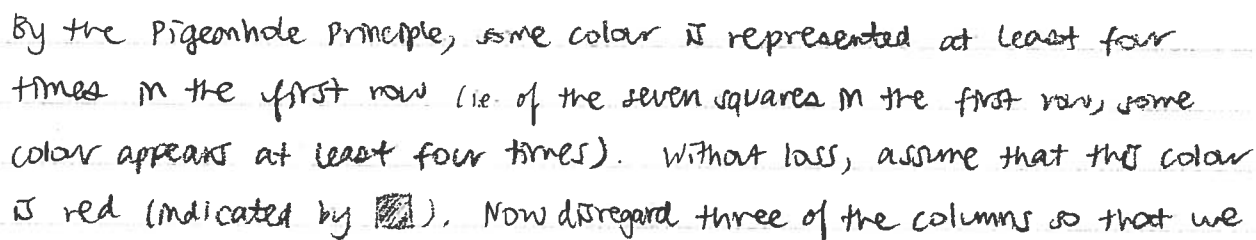 By the Pigeonhole Principle, some colour is represented at least four
times in the first row (i.e. of the seven squares in the first row, some
colour appears at least four times). Without loss, assume that this colour
is red (indicated by ▨). Now disregard three of the columns so that we